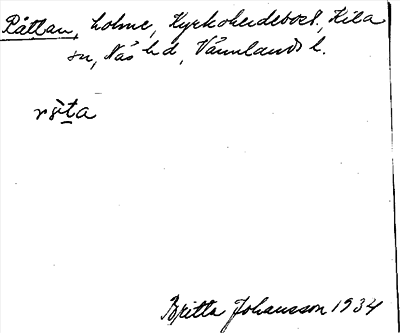 Råttan, holme, Kyrkohcidebost., Kila
sn, Näs hd, Värmlands l.
råta
Britta Johansson 1934